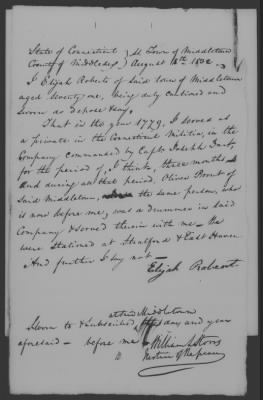 State of Connecticut } ss Town of Middletown
County of Middlesex } August 18th 1832
I Elijah Roberts of said town of Middletown
aged seventy one, being duly cautioned and
sworn do depose & say,
That in the year 1779, I served as
a private in the Connecticut Militia, in the
Company commanded by Capt. Joseph
for the period of, I think, three months
And during all that period, Oliver
Said Middletown, the same person, who
is now before me, was a drummer in said
Company & served therein with me - We
were stationed at Stratford & East Haven
And further I say not -
Elijah Roberts
at said Middletown
Sworn to & subscribed, this day and year
aforesaid - before me
William
Justice of the peace